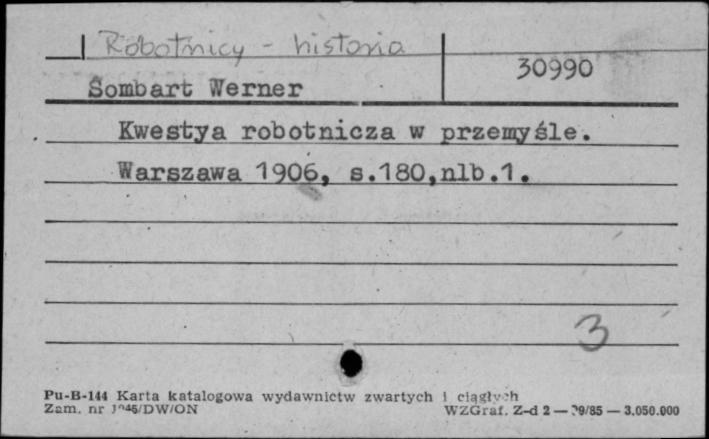 Robotnicy - historia
30990
Sombart Werner
Kwestya robotnicza w przemyśle.
Warszawa 1906, s.180,nlb.1.
3
Pu-B-144 Karta katalogowa wydawnictw zwartych i ciągłych
Zam. nr /DW/ON WZGraf. Z-d 2 — 9/85 — 3.050.000